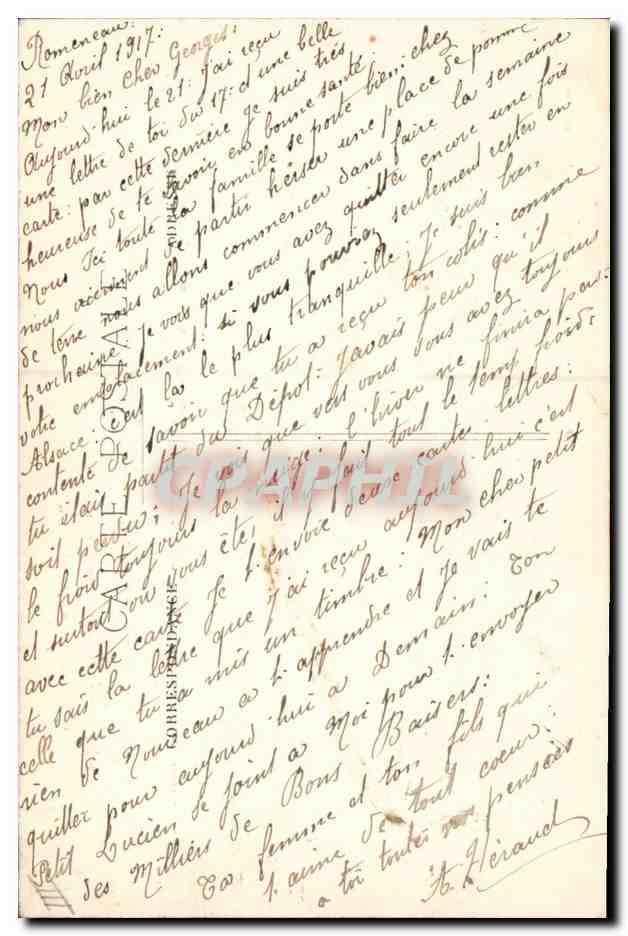 Romeneau:
21 Avril 1917:
Mon bien cher Georges:
Aujourd'hui le 21: j'ai reçu
une lettre de toi du 17: et une belle
carte: par cette dernière je suis très
heureuse de te savoir en bonne santé.
Nous Ici toute la famille se porte bien: chez
nous viennent de partir herser une place de pomme
de terre nous allons commencer dans faire la semaine
prochaine. Je vois que vous avez quitter encore une fois
votre emplacement: si vous pouvez seulement rester en
Alsace: c'est là le plus tranquille; Je suis bien
contente de savoir que tu a reçu ton colis: comme
tu étais partit du Dépot: J'avais peur qu'il
soit perdu; Je vois que vers vous vous avez toujours
le froid toujours la neige: l'hiver ne finira pas:
et surtout où vous êtes, il y fait tout le temp froid;
avec cette carte Je t'envoie deux cartes lettres:
tu sais la lettre que j'ai reçu aujourd'hui c'est
celle que tu a mis un timbre: Mon cher petit
rien de Nouveau a t. apprendre et Je vais te
quitter pour aujourd'hui a Demain: Ton
Petit Lucien se joint a Moi pour t. envoyer
des Milliers de Bons Baisers:
Ta femme et ton fils qui
t. aime de tout coeur:
a toi toutes nos pensées
A. Héraud
CARTE POSTALE
CORRESPONDANCE
ADRESSE
CPAPHIL